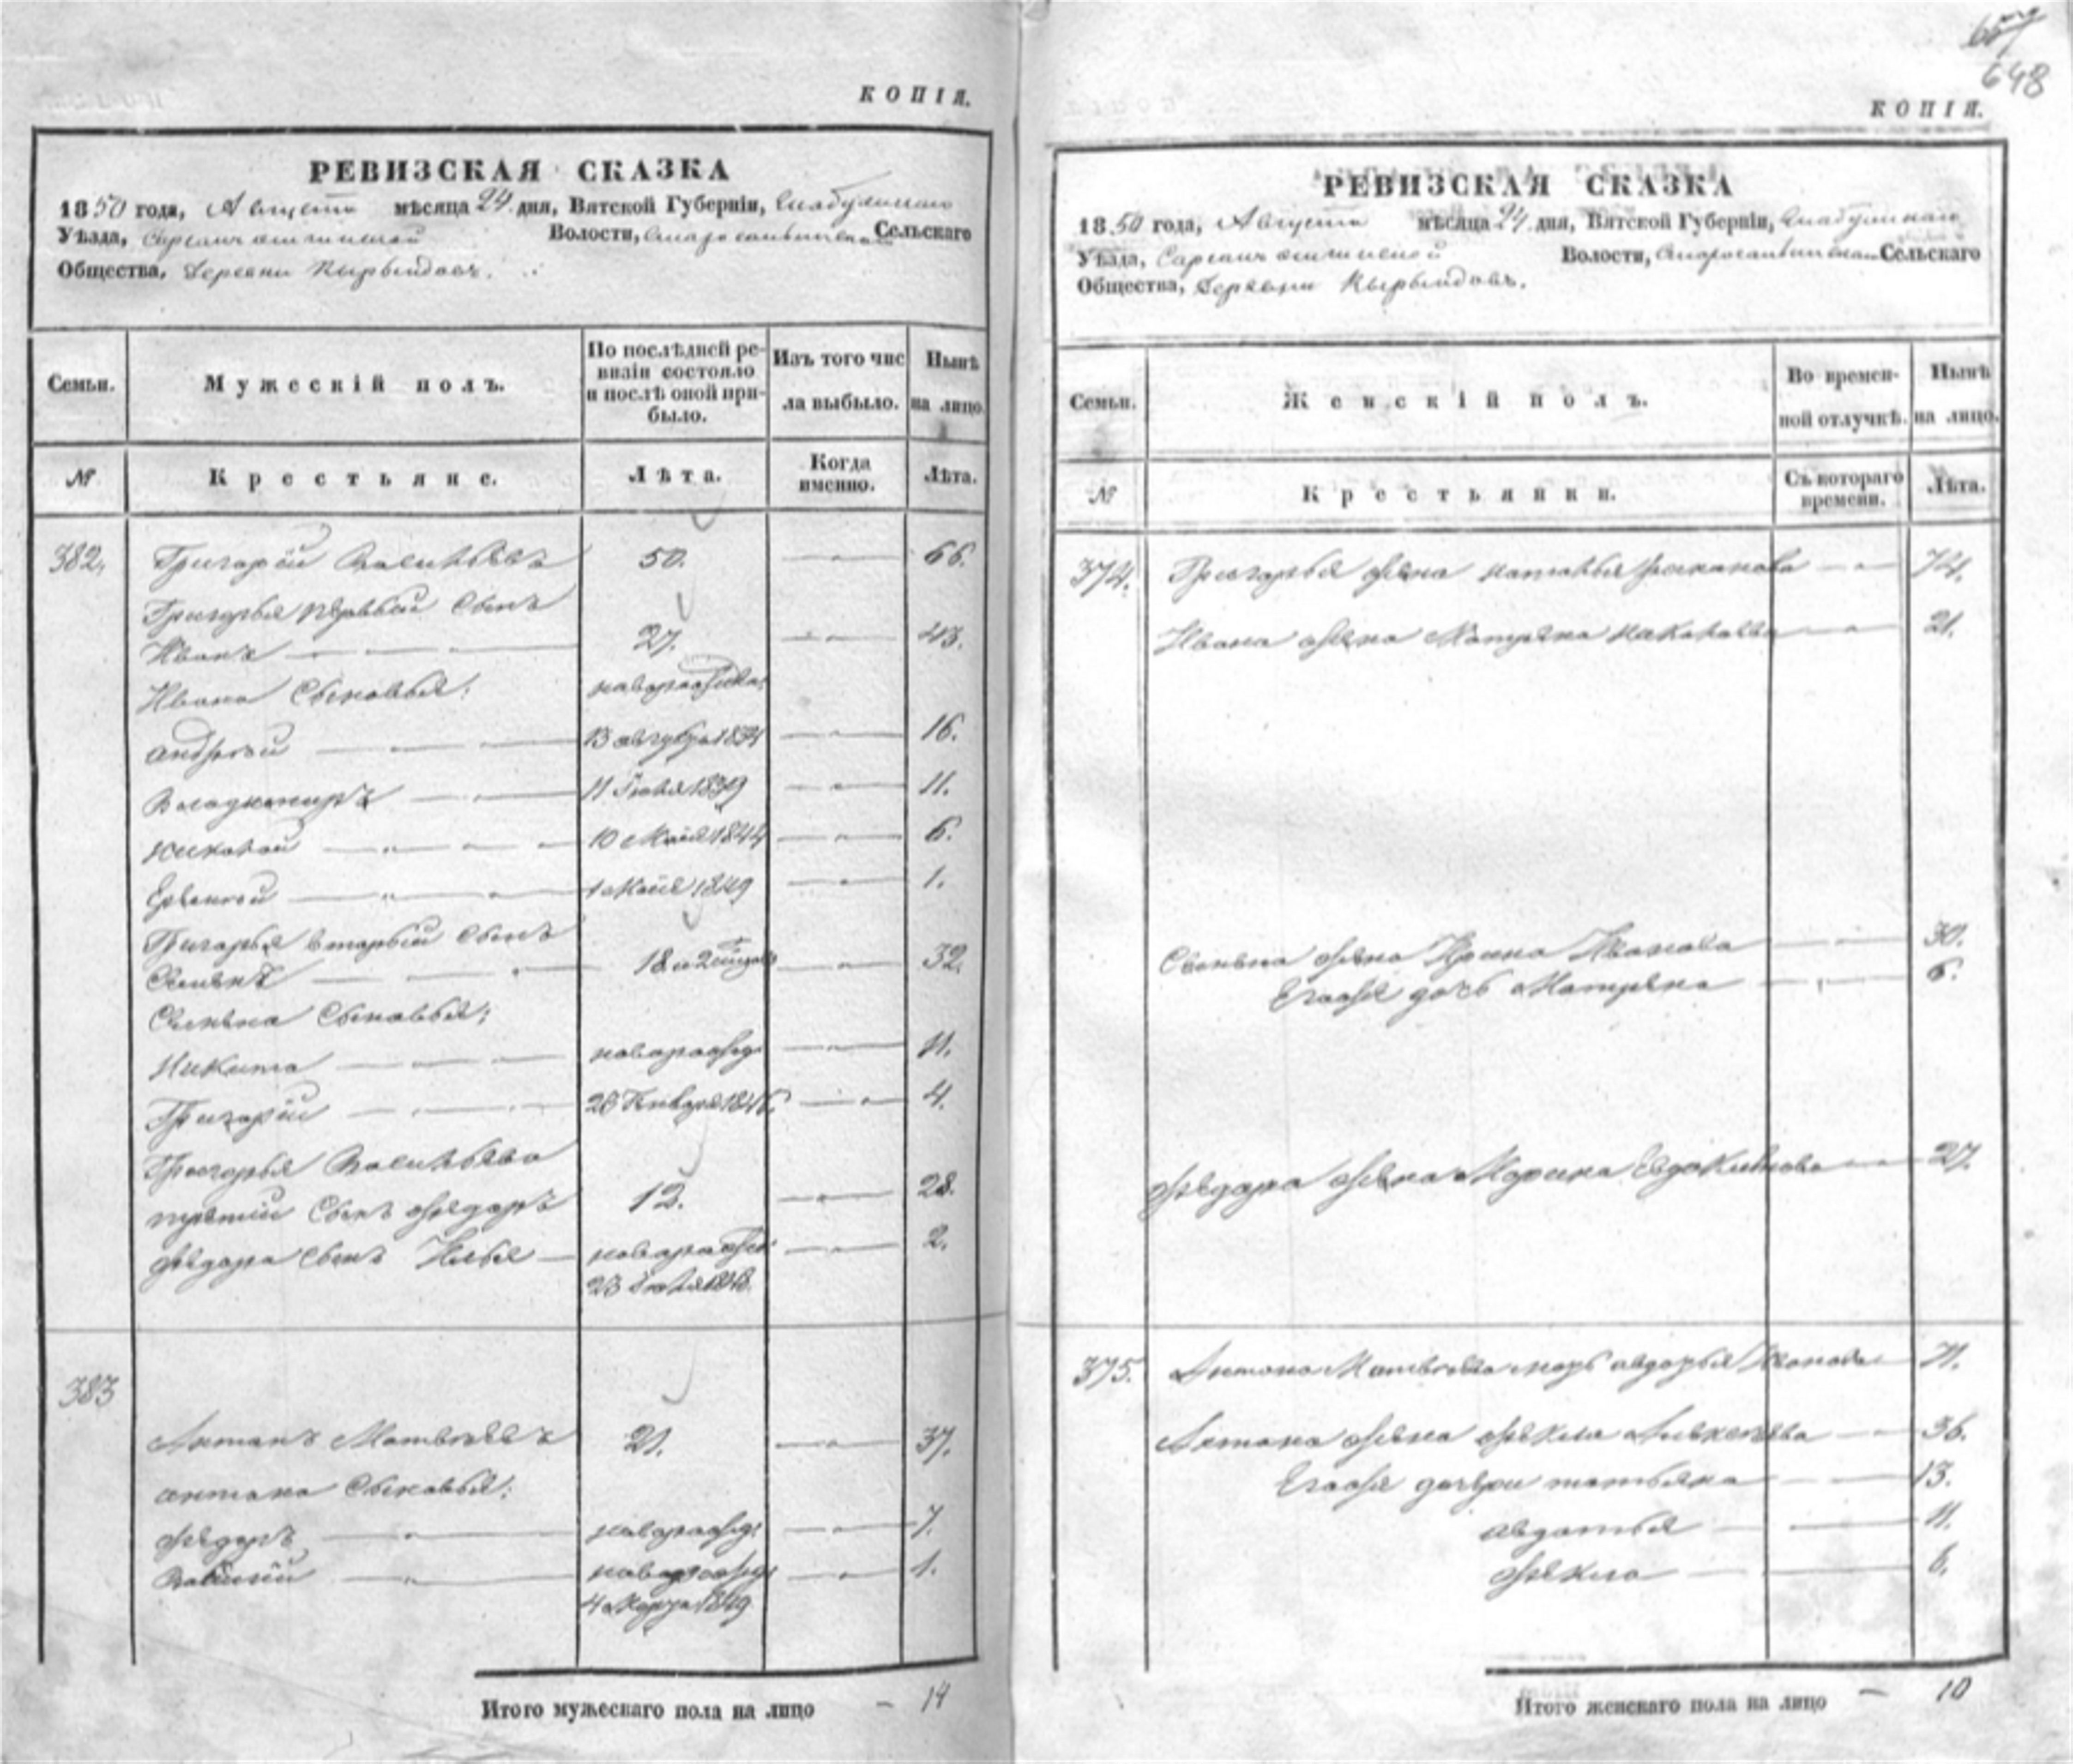 КОПІЯ.
РЕВИЗСКАЯ СКАЗКА
1850 года, Августа мѣсяца 24 дня, Вятской Губерніи, Елабужскаго
Уѣзда, Волости, Сельскаго
Общества, Деревни Кырындовъ.
Семьи.
Мужескій полъ.
По послѣдней ре-
визіи состояло
и послѣ оной при-
было.
Изъ того чис
ла выбыло.
Нынѣ
на лицо.
№
Крестьяне.
Лѣта.
Когда
именно.
Лѣта.
382. Григорій Васильевъ 50. — „ — 66.
Григорья первый сынъ
Иванъ — — — 27. — „ — 43.
Ивана Сыновья: новорожден:
Андрей — — — 13 1834 — „ — 16.
Володимиръ — — 11 Іюля 1839 — „ — 11.
Николай — „ — — 10 Майя 1844 — „ — 6.
Евсей — „ — „ — 1 Майя 1849 — „ — 1.
Григорья вторый сынъ
Семенъ — — „ — 18 и — „ — 32.
Семена Сыновья:
Никита — — — новорожд: — „ — 11.
Григорій — — — 26 Генваря 1846. — „ — 4.
Григорья Васильева
третій Сынъ Федоръ 12. — „ — 28.
Федора Сынъ Илья — новорожден: — „ — 2.
23 Іюля 1848.
383
Антонъ Матвеевъ 21. — „ — 37.
Антона Сыновья:
Федоръ — „ — новорожд: — „ — 7.
Василій — „ — новорожд: — „ — 1.
4 Марта 1849
Итого мужескаго пола на лицо — 14
657
648
КОПІЯ.
РЕВИЗСКАЯ СКАЗКА
1850 года, Августа мѣсяца 24 дня, Вятской Губерніи, Елабужскаго
Уѣзда, Волости, Сельскаго
Общества, Деревни Кырындовъ.
Семьи.
Женскій полъ.
Во времен-
ной отлучкѣ.
Нынѣ
на лицо.
№
Крестьянки.
Съ котораго
времени.
Лѣта.
374. Григорья жена Наталья — „ — 74.
Ивана жена Матрена Николаева — „ — 21.
Семена жена Ирина Иванова — „ — 30.
Егожя дочь Матрена — „ — 6.
Федора жена Марина Евдокимова — „ — 27.
375. Антона Матвеева мать Авдотья Иванова — 71.
Антона жена Фекла Алексеева — „ — 36.
Егожя дочери Татьяна — — 13.
Авдотья — — 11.
Фекла — — 6.
Итого женскаго пола на лицо — 10